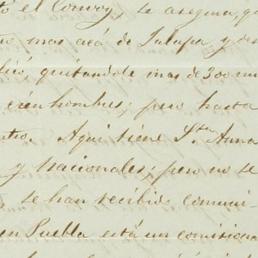 tó el Convoy, se asegura, q
mas acá de Jalapa, y de
quitandole mas de 300 em
cién hombres; pero hasta
Aqui tiene Sta. Anna
y Nacionales; pero no se
se han recibido comuni-
en Puebla está un comisiona